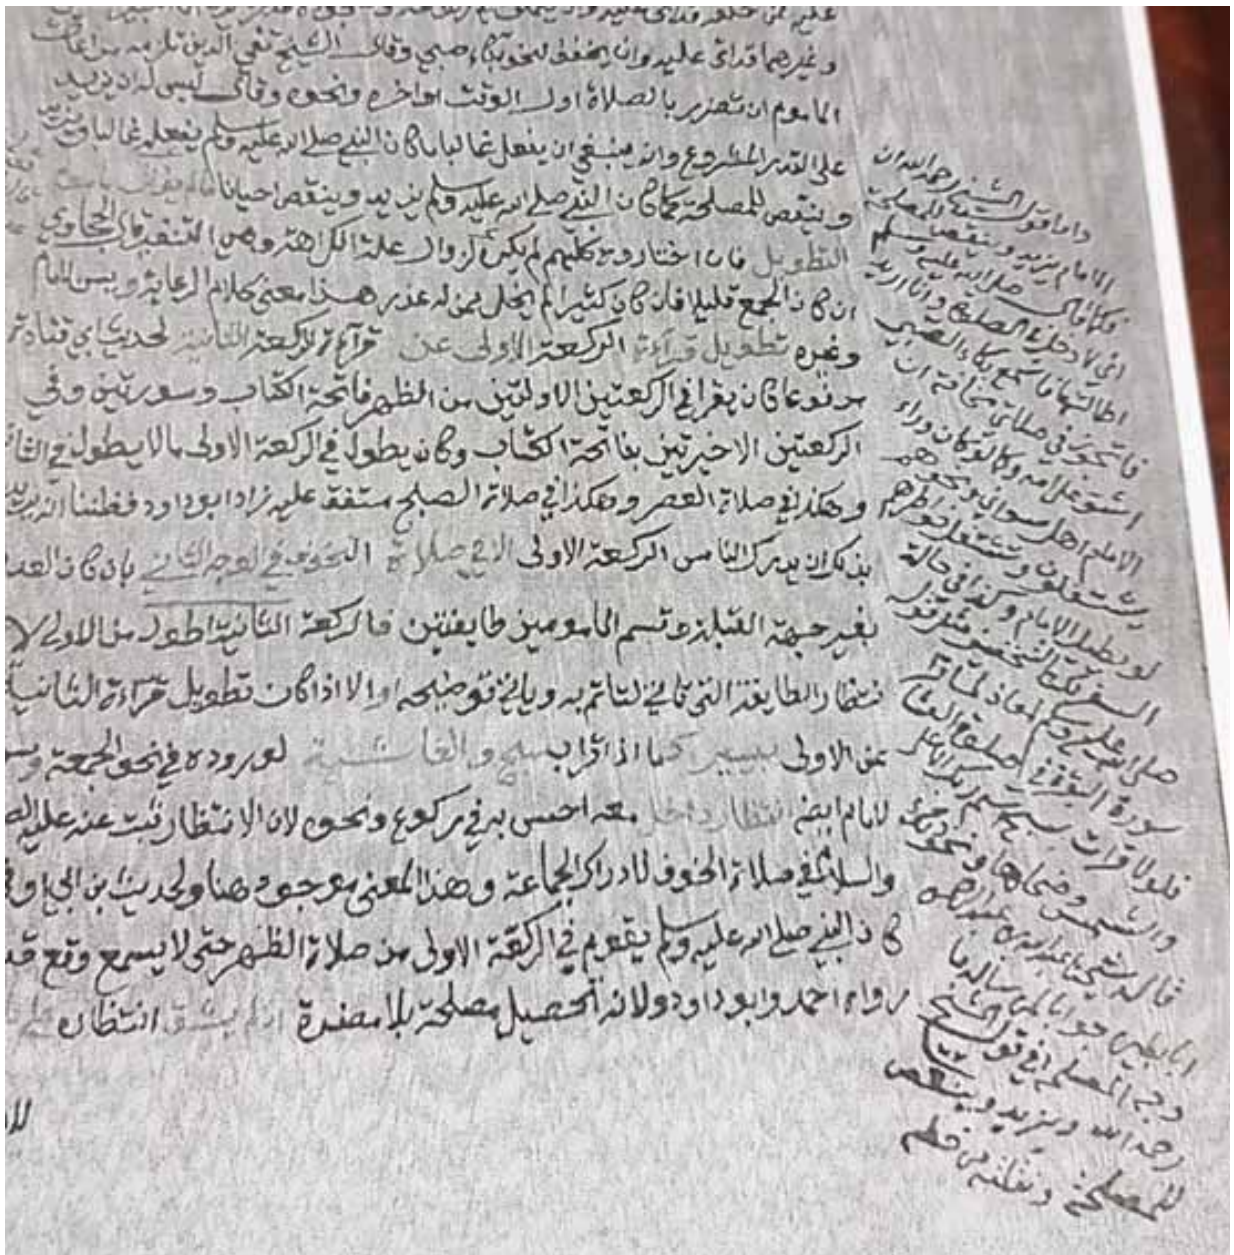 وغيرهما قد اتى عليه وان يخفف لنحو بكاء صبي وقال الشيخ تقي الدين تلزمه مراعاة
الماموم ان تضرر بالصلاة اول الوقت او اخره ونحوه وقال ليس له ان يزيد
على القدر المشروع وانه ينبغي ان يفعل غالبا ما كان النبي صلى الله عليه وسلم يفعله غالبا ويزيد
وينقص للمصلحة كما كان النبي صلى الله عليه وسلم يزيد وينقص احيانا ما لم يؤثر ماموم
التطويل فان اختاروه كلهم لم يكره لزوال علة الكراهة وهي التنفير قال الحجاوي
ان كان الجمع قليلا فان كان كثيرا لم يخل ممن له عذر هذا معنى كلام الرعاية ويسن للامام
وغيره تطويل قراءة الركعة الاولى عن قراءة الركعة الثانية لحديث ابي قتادة
مرفوعا كان يقرا في الركعتين الاولتين من الظهر فاتحة الكتاب وسورتين وفي
الركعتين الاخيرتين بفاتحة الكتاب وكان يطول في الركعة الاولى ما لا يطول في
وهكذا في صلاة العصر وهكذا في صلاة الصبح متفق عليه زاد ابو داود فظننا انه يريد
بذلك ان يدرك الناس الركعة الاولى الا في صلاة الخوف في الوجه الثاني بان كان العدو
بغير جهة القبلة وقسم المامومين طايفتين فالركعة الثانية اطول من الاولى
انتظار الطايفة التي تاتي لتاتم به وياتي توضيحه او الا اذا كان تطويل قراءة الثانية
عن الاولى بيسير كما اذا قرا بسبح والغاشية لوروده في نحو الجمعة
للامام ايضا انتظار داخل معه احس به في ركوع ونحوه لان الانتظار ثبت عنه عليه
والسلام في صلاة الخوف لادراك الجماعة وهذا المعنى موجود هنا ولحديث ابن ابي اوفى
كان النبي صلى الله عليه وسلم يقوم في الركعة الاولى من صلاة الظهر حتى لا يسمع وقع قدم
رواه احمد وابو داود ولانه تحصيل مصلحة بلا مضرة ان لم يشق انتظاره
واما قول الشيخ رحمه الله ان
الامام يزيد وينقص للمصلحة
فكما قال صلى الله عليه وسلم
اني لادخل في الصلاة وانا اريد
اطالتها فاسمع بكاء الصبي
فاتجوز في صلاتي مخافة ان
اشق على امه وكما لو كان وراء
الامام اهل سواني ونحوهم
يشتغلون وتشتغل خواطرهم
لو يطيل الامام وكذا في حالة
السفر
صلى الله عليه وسلم لمعاذ لما قرا
سورة البقرة في صلاة العشا
فلولا قرات بسبح اسم ربك الاعلى
والشمس وضحاها ونحو ذلك
قاله شيخنا عبد الله بن عبد الرحمن
ابا بطين جوابا لمن ساله ما
وجه المصلحة في قول الشيخ
رحمه الله ويزيد وينقص
للمصلحة ونقلته من خطه